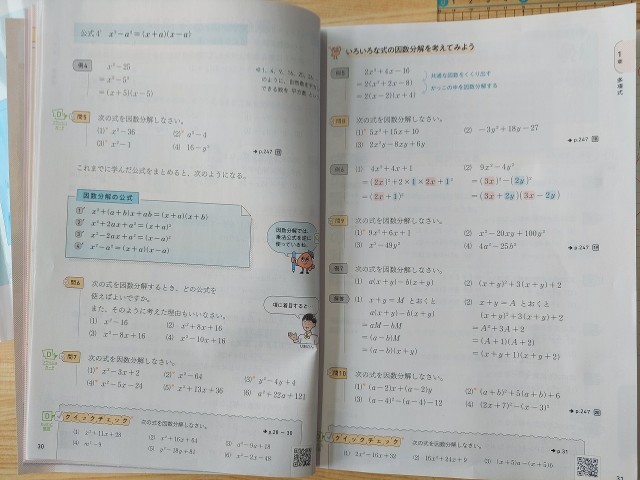 公式4' x²−a²=(x+a)(x−a)
例4 x²−25
=x²−5²
=(x+5)(x−5)
問5 次の式を因数分解しなさい。
(1) x²−36 (2) a²−4
(3) x²−1 (4) 16−y²
→p.247
これまでに学んだ公式をまとめると、次のようになる。
因数分解の公式
1' x²+(a+b)x+ab=(x+a)(x+b)
2' x²+2ax+a²=(x+a)²
3' x²−2ax+a²=(x−a)²
4' x²−a²=(x+a)(x−a)
因数分解では、
乗法公式を逆に
使っているね。
問6 次の式を因数分解するとき、どの公式を
使えばよいですか。
また、そのように考えた理由もいいなさい。
(1) x²−16 (2) x²+8x+16
(3) x²−8x+16 (4) x²−10x+16
項に着目すると…
問7 次の式を因数分解しなさい。
(1) x²−3x+2 (2) x²−64 (3) y²−4y+4
(4) x²−5x−24 (5) x²+13x+36 (6) a²+22a+121
クイックチェック 次の式を因数分解しなさい。
(1) x²+11x+28 (2) x²+16x+64 (3) a²−9a+18
(5) y²−18y+81 (6) x²−2x−48
30
いろいろな式の因数分解を考えてみよう
1章 多項式
例5 2x²+4x−16
=2(x²+2x−8)
=2(x−2)(x+4)
共通な因数をくくり出す
かっこの中を因数分解する
問8 次の式を因数分解しなさい。
(1) 5x²+15x+10 (2) −3y²+18y−27
(3) 2x²y−8xy+6y
→p.247 18
例6 (1) 4x²+4x+1 (2) 9x²−4y²
=(2x)²+2×1×2x+1² =(3x)²−(2y)²
=(2x+1)² =(3x+2y)(3x−2y)
問9 次の式を因数分解しなさい。
(1) 9x²+6x+1 (2) x²−20xy+100y²
(3) x²−49y² (4) 4a²−25b²
→p.247 19
例7 次の式を因数分解しなさい。
(1) a(x+y)−b(x+y) (2) (x+y)²+3(x+y)+2
解答 (1) x+y=M とおくと (2) x+y=A とおくと
a(x+y)−b(x+y) (x+y)²+3(x+y)+2
=aM−bM =A²+3A+2
=(a−b)M =(A+1)(A+2)
=(a−b)(x+y) =(x+y+1)(x+y+2)
問10 次の式を因数分解しなさい。
(1) (a−2)x+(a−2)y (2) (a+b)²+5(a+b)+6
(3) (a−4)²−(a−4)−12 (4) (2x+7)²−(x−3)²
→p.247 20
クイックチェック 次の式を因数分解しなさい。
→p.31
31